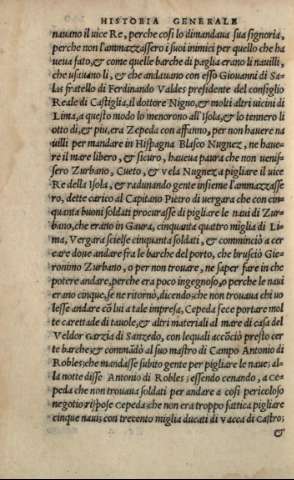 HISTORIA GENERALE
nauano il uice Re, perche cosi lo dimandaua sua signoria,
perche non l'ammazzassero i suoi inimici per quello che ha
ueua fato, & come quelle barche di paglia erano li nauilli,
che usauano li, & che andauano con esso Giouanni di Sa-
las fratello di Ferdinando Valdes presidente del consiglio
Reale di Castiglia, il dottore Nigno, & molti altri uicini di
Lima, a questo modo lo menorono all'Isola, & lo tennero li
otto dì, & piu, era Zepeda con affanno, per non hauere na
uilli per mandare in Hispagna Blasco Nugnez, ne haue-
re il mare libero, & sicuro, haueua paura che non uenis-
sero Zurbano, Cueto, & Vela Nugnez a pigliare il uice
Re della Isola, & radunando gente insieme l'ammazzasse
ro, dette carico al Capitano Pietro di uergara che con cin-
quanta buoni soldati procurasse di pigliare le naui di Zur-
bano, che erano in Gaura, cinquanta quattro miglia di Li-
ma, Vergara scielse cinquanta soldati, & cominciò a cer
care doue andare fra le barche del porto, che brusciò Gie-
ronimo Zurbano, o per non trouare, ne saper fare in che
potere andare, perche era poco ingegnoso, o perche le naui
erano cinque, se ne ritornò, dicendo; che non trouaua chi uo
lesse andare cō lui a tale impresa, Cepeda fece portare mol
te carettade di tauole, & altri materiali al mare di casa del
Veldor Garzia di Sanzedo, con lequali accōciò presto cer
te barche; & commādò al suo mastro di Campo Antonio di
Robles; che mandasse subito gente per pigliare le naue; al-
la notte disse Antonio di Robles; essendo cenando, a Ce-
peda che non trouaua soldati per andare a cosi pericoloso
negotio: rispose Cepeda; che non era troppo fattica pigliare
cinque naui; con trecento miglia ducati di vacca di Castro;
&